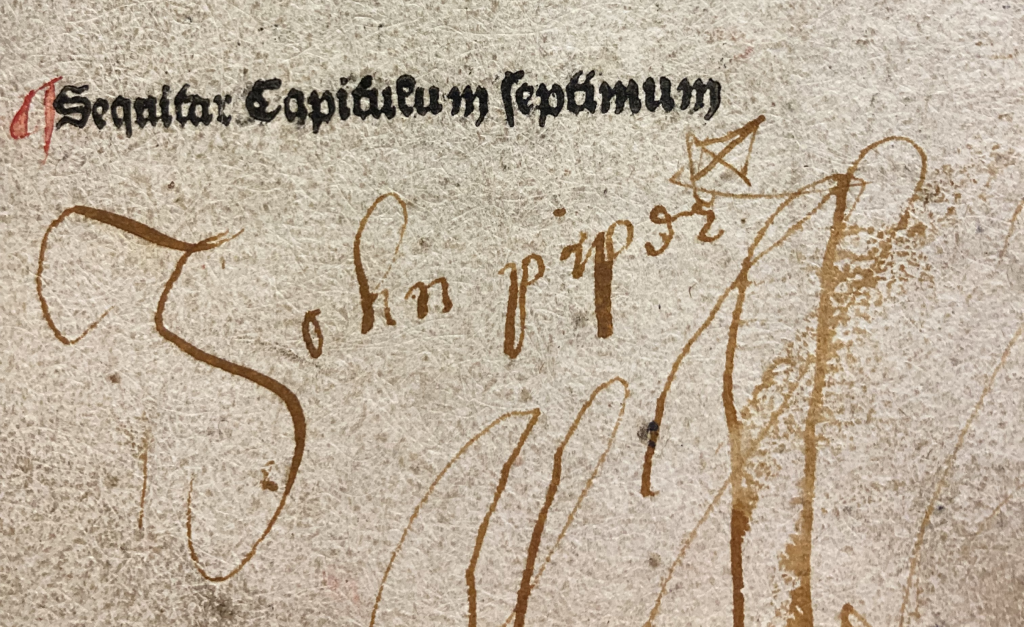 ¶ Sequitur Capitulum septimum
John piper